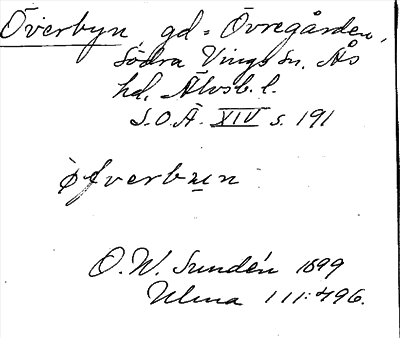 Överbyn, gd = Övregården,
Södra Vings sn. Ås
hd, Älvsb. l.
S.O.Ä. XIV s. 191
øfverbyn
O. W. Sundén 1899
Ulma 111:496.